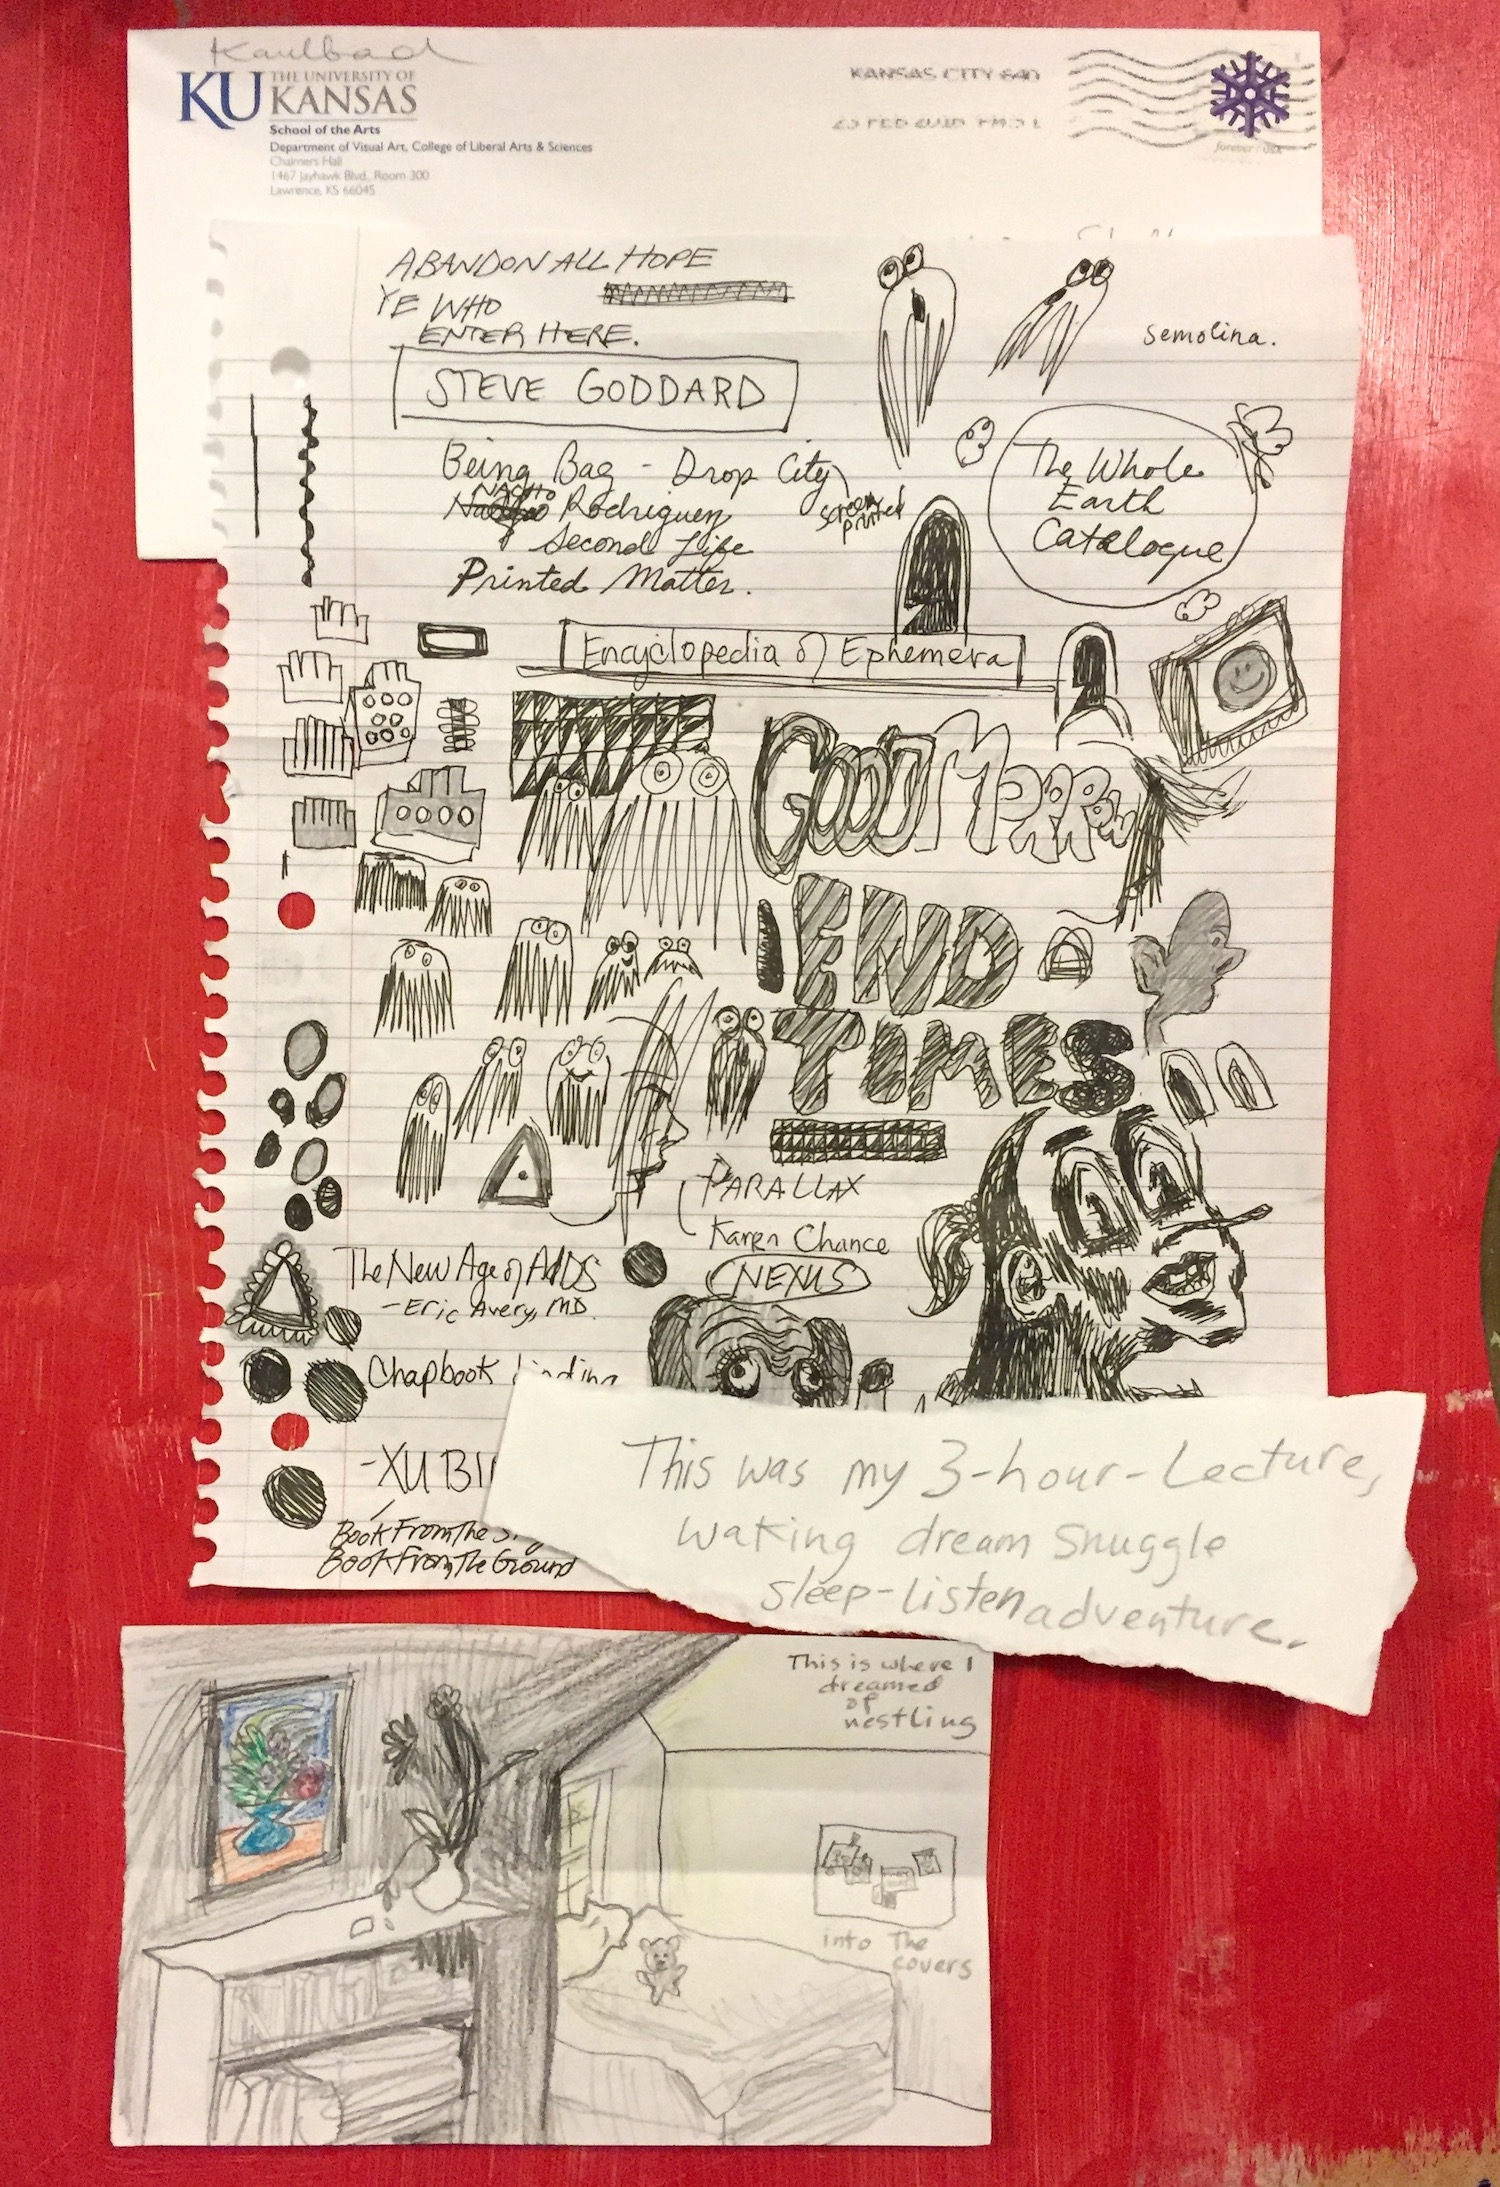 Kaulbach
KU THE UNIVERSITY OF
KANSAS
School of the Arts
Department of Visual Art, College of Liberal Arts & Sciences
Chalmers Hall
1467 Jayhawk Blvd., Room 300
Lawrence, KS 66045
KANSAS CITY 640
forever / USA
ABANDON ALL HOPE
YE WHO
ENTER HERE.
semolina.
STEVE GODDARD
Being Bag - Drop City
screen
printed
NACHO
Rodriguez
Second Life
Printed Matter.
The Whole
Earth
Catalogue
Encyclopedia of Ephemera
GOOD MORROW
END
TIMES
PARALLAX
Karen Chance
NEXUS
The New Age of AIDS
- Eric Avery, MD.
Chapbook
-XU BI
Book From The
Book From The Ground
This was my 3-hour-Lecture,
waking dream snuggle
sleep-listen adventure.
This is where I
dreamed
of
nestling
into The
covers